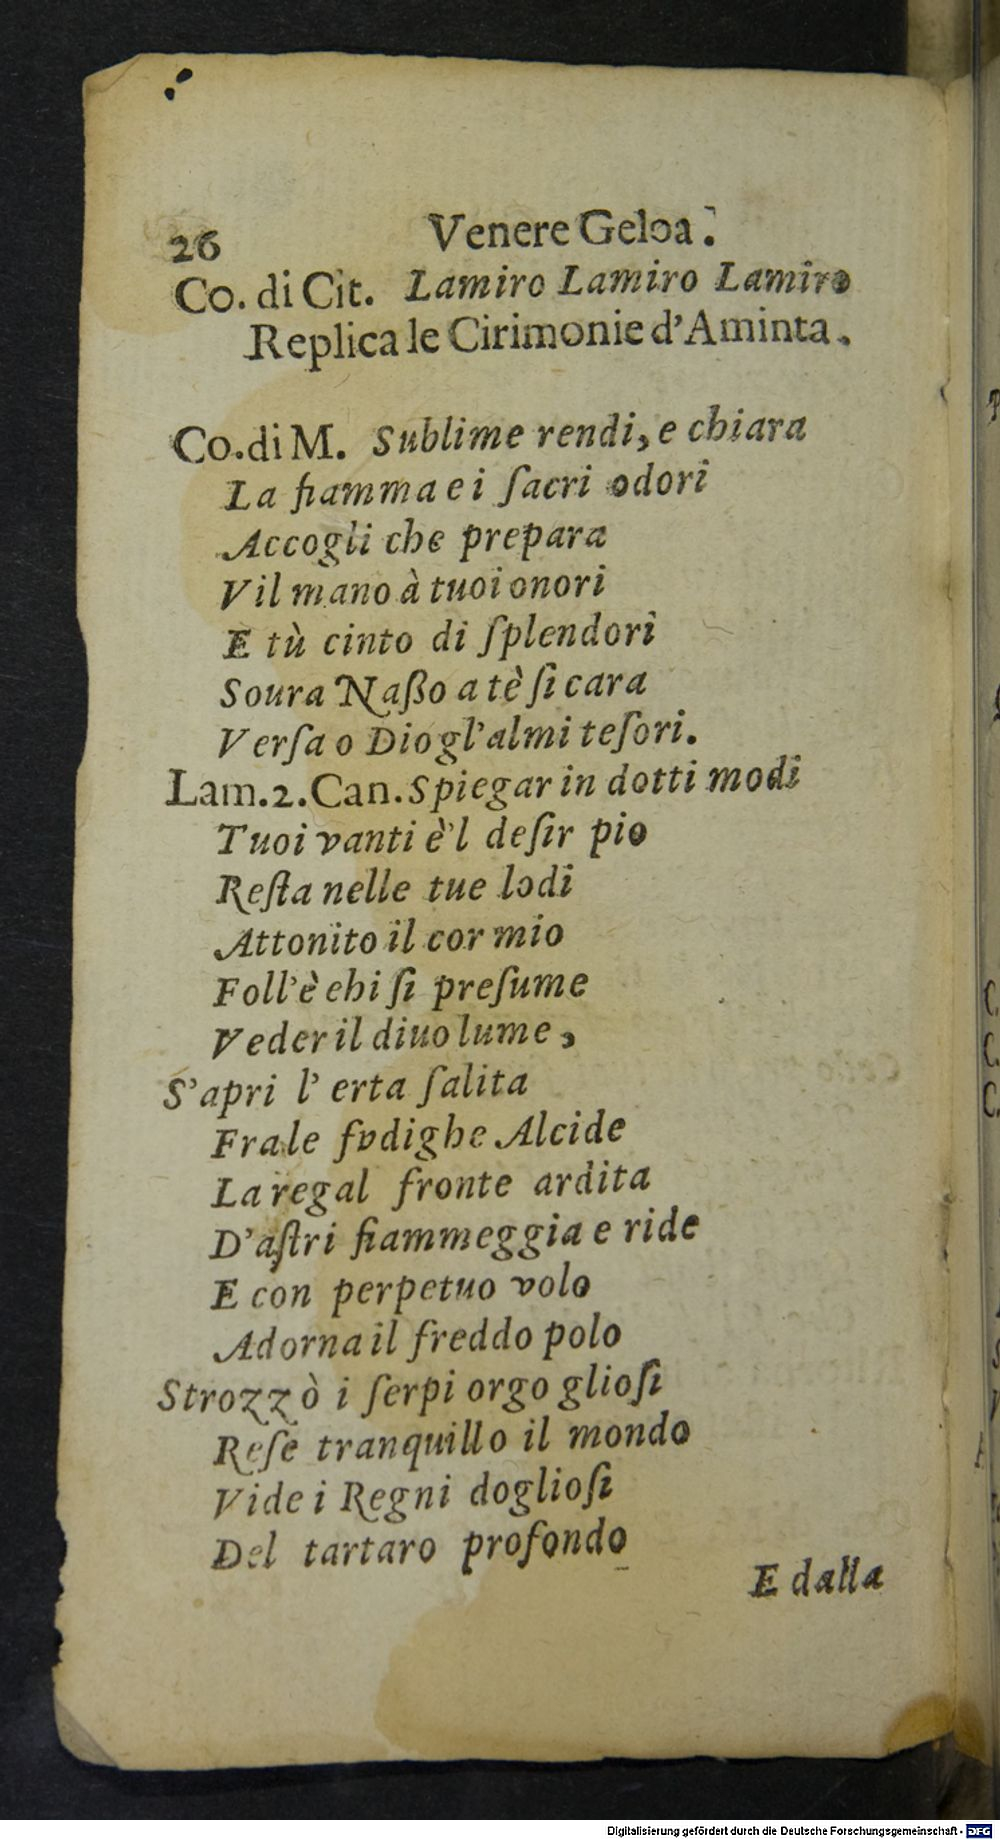 26 Venere Geloa.
Co. di Cit. Lamiro Lamiro Lamiro
Replica le Cirimonie d'Aminta.
Co. di M. Sublime rendi, e chiara
La fiamma e i ſacri odori
Accogli che prepara
Vil mano à tuoi onori
E tù cinto di ſplendori
Soura Naßo a tè ſi cara
Verſa o Dio gl'almi teſori.
Lam. 2. Can. Spiegar in dotti modi
Tuoi vanti è'l deſir pio
Reſta nelle tue lodi
Attonito il cor mio
Foll'è ehi ſi preſume
Veder il diuo lume,
S'apri l' erta ſalita
Fra le fvdighe Alcide
La regal fronte ardita
D'aſtri fiammeggia e ride
E con perpetuo volo
Adorna il freddo polo
Strozzò i ſerpi orgo glioſi
Reſe tranquillo il mondo
Vide i Regni doglioſi
Del tartaro profondo
E dalla
Digitalisierung gefördert durch die Deutsche Forschungsgemeinschaft - DFG